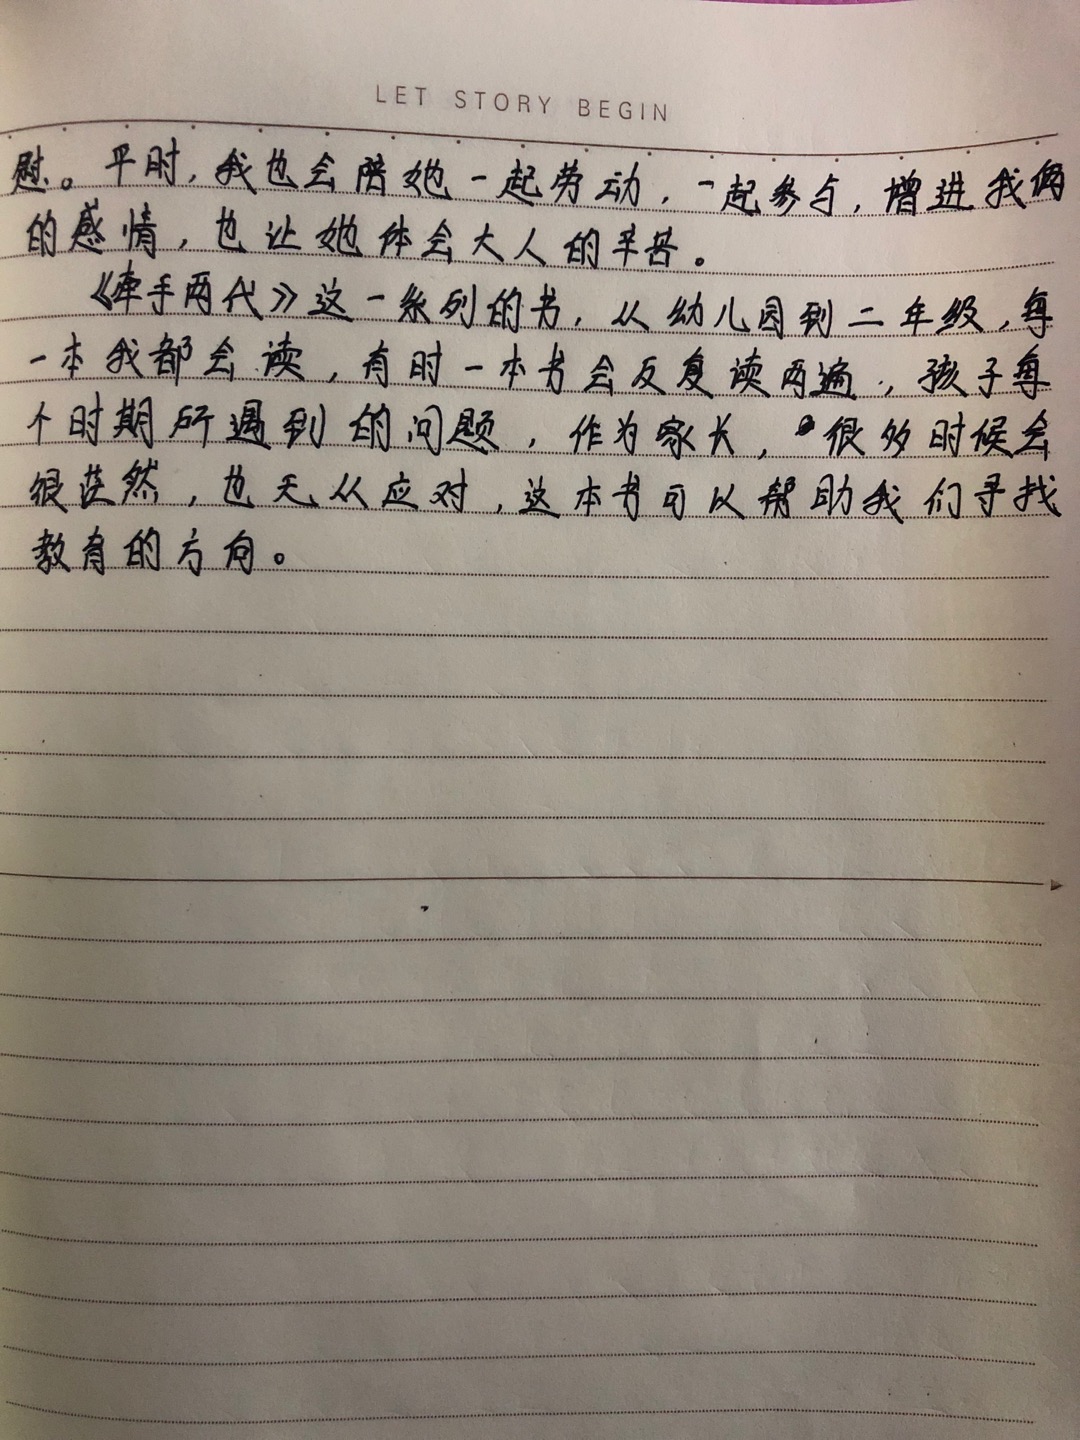 LET STORY BEGIN
慰。平时,我也会陪她一起劳动,一起参与,增进我俩
的感情,也让她体会大人的辛苦。
《牵手两代》这一系列的书,从幼儿园到二年级,每
一本我都会读,有时一本书会反复读两遍,孩子每
个时期所遇到的问题,作为家长,很多时候会
很茫然,也无从应对,这本书可以帮助我们寻找
教育的方向。